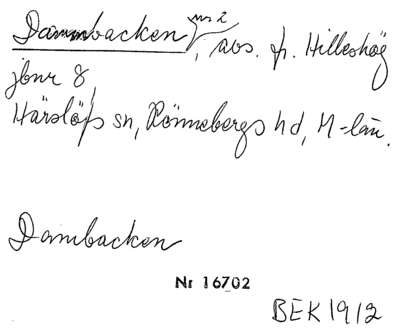 Dammbacken nr 2, avs. fr. Hilleshög
jbnr 8,
Härslöfs sn, Rönnebergs hd, M-län.
Dambacken
Nr 16702
BEK 1912